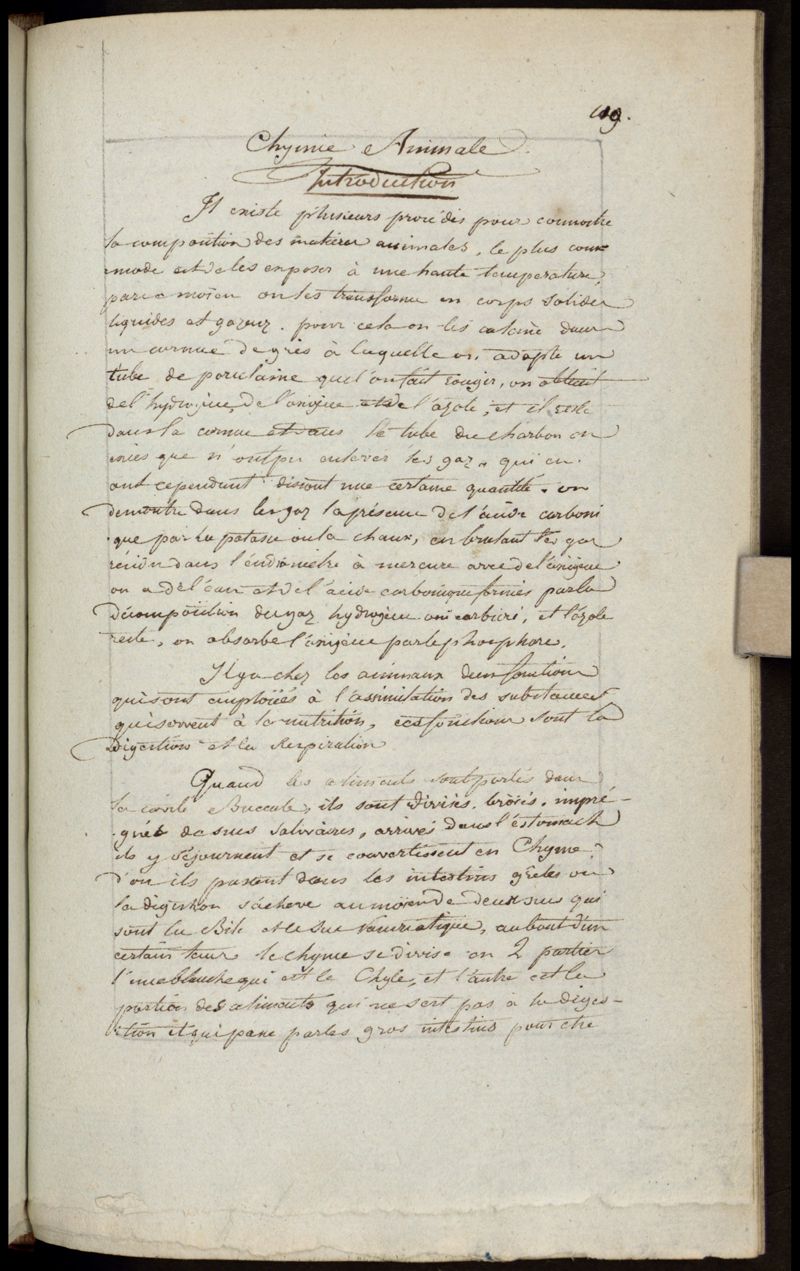 119.
Chymie Animale
Introduction
Il existe plusieurs procédés pour connoitre
la composition des matieres animales, le plus com
mode est de les exposer à une haute temperature,
par ce moïen on les transforme en corps solides
liquides et gazeux. pour cela on les calcine dans
une cornue de grès à laquelle on adapte un
tube de porcelaine que l'on fait rougir, on obtient
de l'hydrogène, de l'oxigene et de l'azote, et il reste
dans la cornue et dans le tube du charbon en
excès que n'ont pu enlever les gaz, qui en
ont cependant dissout une certaine quantité. on
demontre dans les gaz la présence de l'acide carboni
que par la potasse ou la chaux, en brulant les gaz
dans l'eudiometre à mercure avec de l'oxigene
on a de l'eau et de l'acide carbonique formés par la
décomposition du gaz hydrogène oxi carburé, et l'azote
reste, on absorbe l'oxigène par le phosphore.
Il y a chez les animaux deux fonctions
qui sont emploïées à l'assimilation des substances
qui servent à la nutrition, ces fonctions sont la
Digestion et la Respiration
Quand les aliments sont portés dans
la cavité Buccale, ils sont divisés, broïés, impré-
gnés de sucs salivaires, arrivés dans l'éstomach
ils y séjournent et se convertissent en Chyme,
d'ou ils passent dans les intestins grèles ou
la digestion s'acheve au moïen de deux sucs qui
sont la Bile et le suc pancreatique, au bout d'un
certain tems le chyme se divise en 2 parties
l'une blanche qui est le Chyle, et l'autre est la
portion des aliments qui ne sert pas a la diges-
tion et qui passe par les gros intestins pour etre